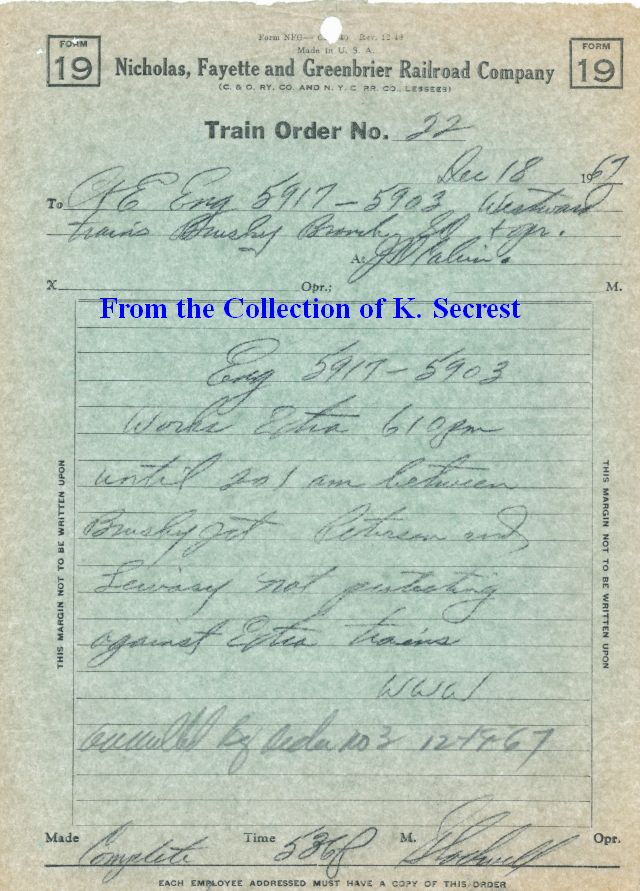 Form NFG— Rev. 12-48
Made in U. S. A.
FORM 19
FORM 19
Nicholas, Fayette and Greenbrier Railroad Company
(C. & O. RY. CO. AND N. Y. C. RR. CO., LESSEES)
Train Order No. 22
Dec 18 1967
To C+E Eng 5917-5903 Westward
trains Brushy +opr.
At
X Opr.; M.
From the Collection of K. Secrest
Eng 5917-5903
Works Extra 610pm
until 201 am between
Brushy Jct Peterson and
Leivasy not protecting
against Extra trains
WWW
by order no 3 12-19-67
THIS MARGIN NOT TO BE WRITTEN UPON
THIS MARGIN NOT TO BE WRITTEN UPON
Made Complete Time 536P M. Opr.
EACH EMPLOYEE ADDRESSED MUST HAVE A COPY OF THIS ORDER